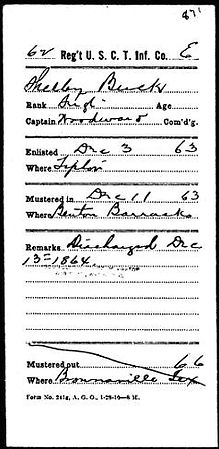 871
62 Reg't U. S. C. T. Inf. Co. E
Shelby Buck
Rank Age
Captain Woodward Com'd'g.
Enlisted Dec 3 63
Where Tipton
Mustered in Dec 11 63
Where Benton Barracks
Remarks Discharged Dec
13= 1864
Mustered out 66
Where Brownsville Tex
Form No. 241g, A. G. O., 1-28-10—8 M.